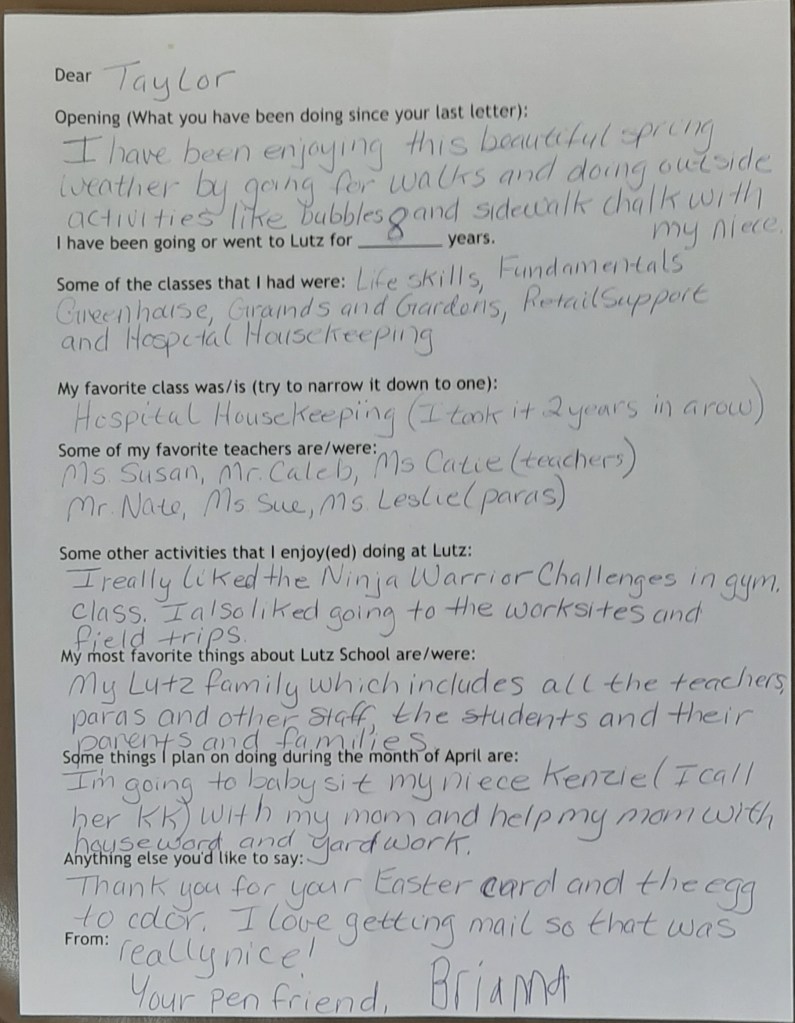 Dear Taylor
Opening (What you have been doing since your last letter):
I have been enjoying this beautiful spring
weather by going for walks and doing outside
activities like bubbles and sidewalk chalk with
my niece.
I have been going or went to Lutz for 8 years.
Some of the classes that I had were: Life skills, Fundamentals
Greenhouse, Grounds and Gardens, Retail Support
and Hospital Housekeeping
My favorite class was/is (try to narrow it down to one):
Hospital Housekeeping (I took it 2 years in a row)
Some of my favorite teachers are/were:
Ms. Susan, Mr. Caleb, Ms Catie (teachers)
Mr. Nate, Ms. Sue, Ms. Leslie (paras)
Some other activities that I enjoy(ed) doing at Lutz:
I really liked the Ninja Warrior Challenges in gym.
class. I also liked going to the worksites and
field trips.
My most favorite things about Lutz School are/were:
My Lutz family which includes all the teachers,
paras and other staff, the students and their
parents and families
Some things I plan on doing during the month of April are:
I'm going to babysit my niece Kenzie (I call
her KK) with my mom and help my mom with
houseword and yardwork.
Anything else you'd like to say:
Thank you for your Easter card and the egg
to color. I love getting mail so that was
From: really nice!
Your pen friend, Briana